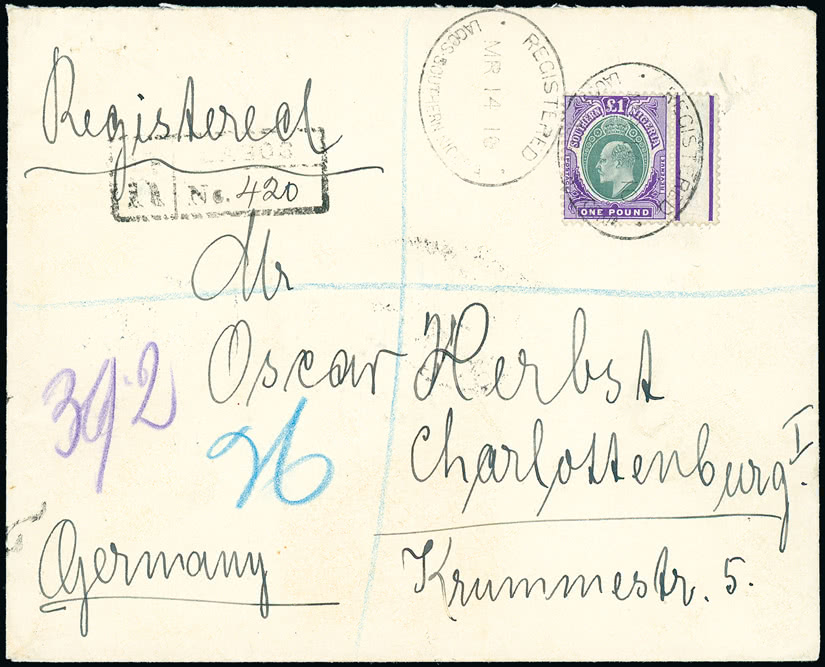 Registered
LAGOS
R No. 420
REGISTERED
LAGOS SOUTHERN
MR 14 10
REGISTERED
SOUTHERN £1 NIGERIA
POSTAGE REVENUE
ONE POUND
Mr
Oscar Herbst
Charlottenburg. I
Krummestr. 5.
Germany
392